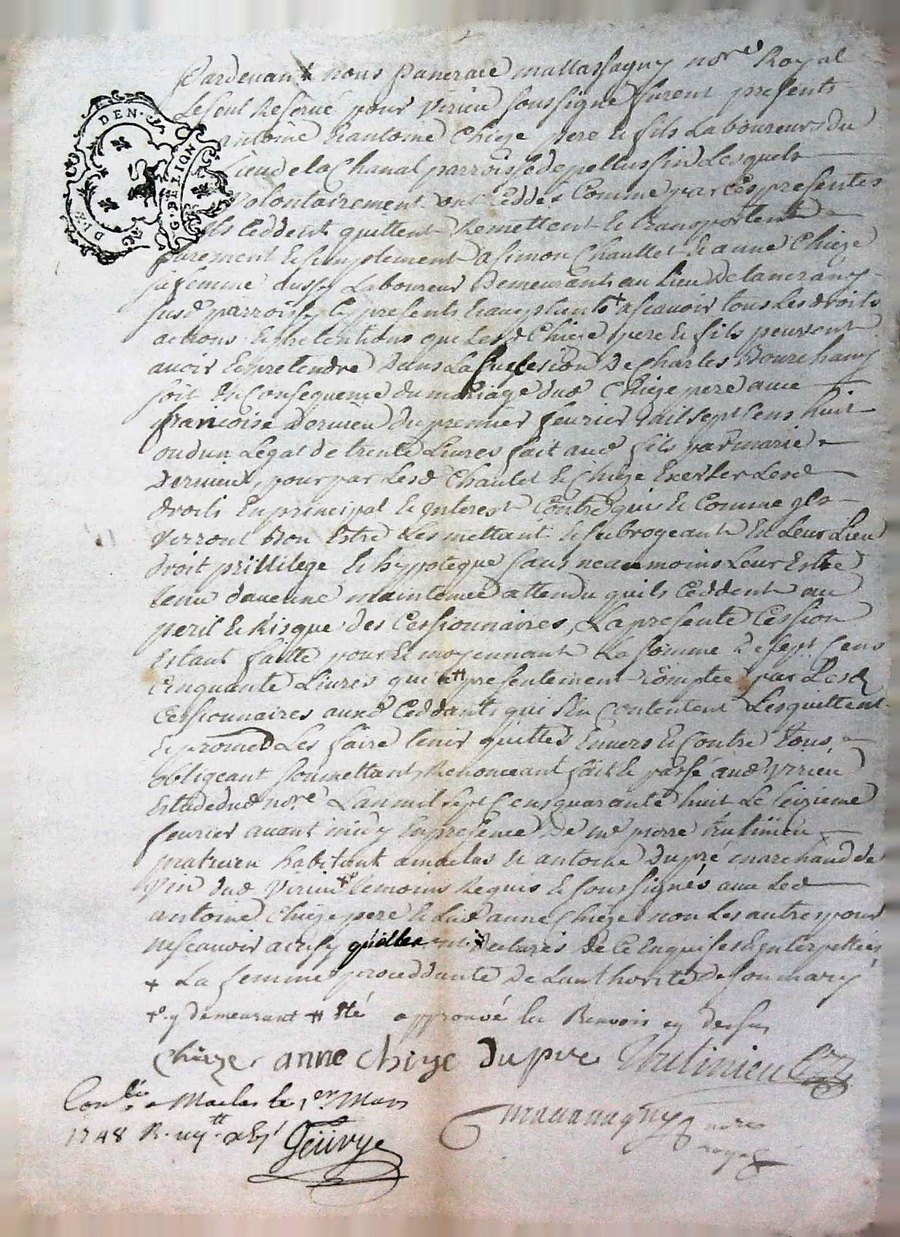 Pardevant nous pancrace mattassagny nore Royal
Le seul Reservé pour Virieu soussigné furent presents
antoine & antoine Chieze pere & fils Laboureurs du
Lieu de la Chanal parroisse de pellussin Lesquels
volontairement ont Ceddés Comme par Ces presentes
ils Ceddent quittent Remettent & transportent
purement & simplement a simon Chaullet & anne Chieze
sa femme aussy Laboureur Demeurants au Lieu De
susd parroisse icy presents & acceptants + ascavoir tous Les droits
actions & pretentions que Lesd Chieze pere & fils peuvent
avoir & pretendre Dans La sucession De Charles Bourchany
soit En Consequence du mariage dud Chieze pere avec
françoise Dervieu Du premier fevrier mil sept Cens huit
ou d'un Legat de trente Livres fait aud fils par marie
Dervieux, pour par Lesd Chaulet & Chieze Exerser Lesd
droits En principal & interest Contre qui & Comme ils
verront Bon Estre Les mettant & subrogeant En Leur Lieu
droit privillege & hypoteque sans neanmoins Leur Estre
tenu d'aucune maintenue attendu qu'ils Ceddent au
peril & Risque des Cessionnaires, La presente Cession
Estant faitte pour & moyennant La somme De sept Cens
Cinquante Livres qui a ++ presentement Comptée par Lesd
Cessionnaires auxd Ceddants qui s'En Contentent Les quittent
& promet Les faire tenir quittes Envers & Contre Tous,
obligeant soumettant, Renonceant fait & passé aud Virieu
Estude dud nore L'an mil sept Cens quarante huit Le seizieme
fevrier avant midy En presence De me pierre
praticien habitant a malas & antoine Dupré marchand de
vin dud Virieu +o temoins Requis & soussignés avec Led
antoine Chieze pere & Lad anne Chieze non Les autres pour
ne scavoir de ce Enquis & Interpellés
+ La femme proceddante De L'authorité De son mary
+o y demeurant ++ été approuvé les Renvois cy dessus
chieze anne chieze Dupre
Conlé a Maclas le 1er Mars
1748 R.
mattassagny nore
royal
DEN.
G. DE LION